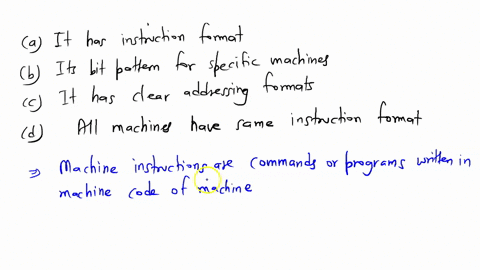 (a) It has instruction format
(b) Its bit pattern for specific machines
(c) It has clear addressing formats
(d) All machines have same instruction format
⇒ Machine instructions are commands or programs written in
machine code of machine